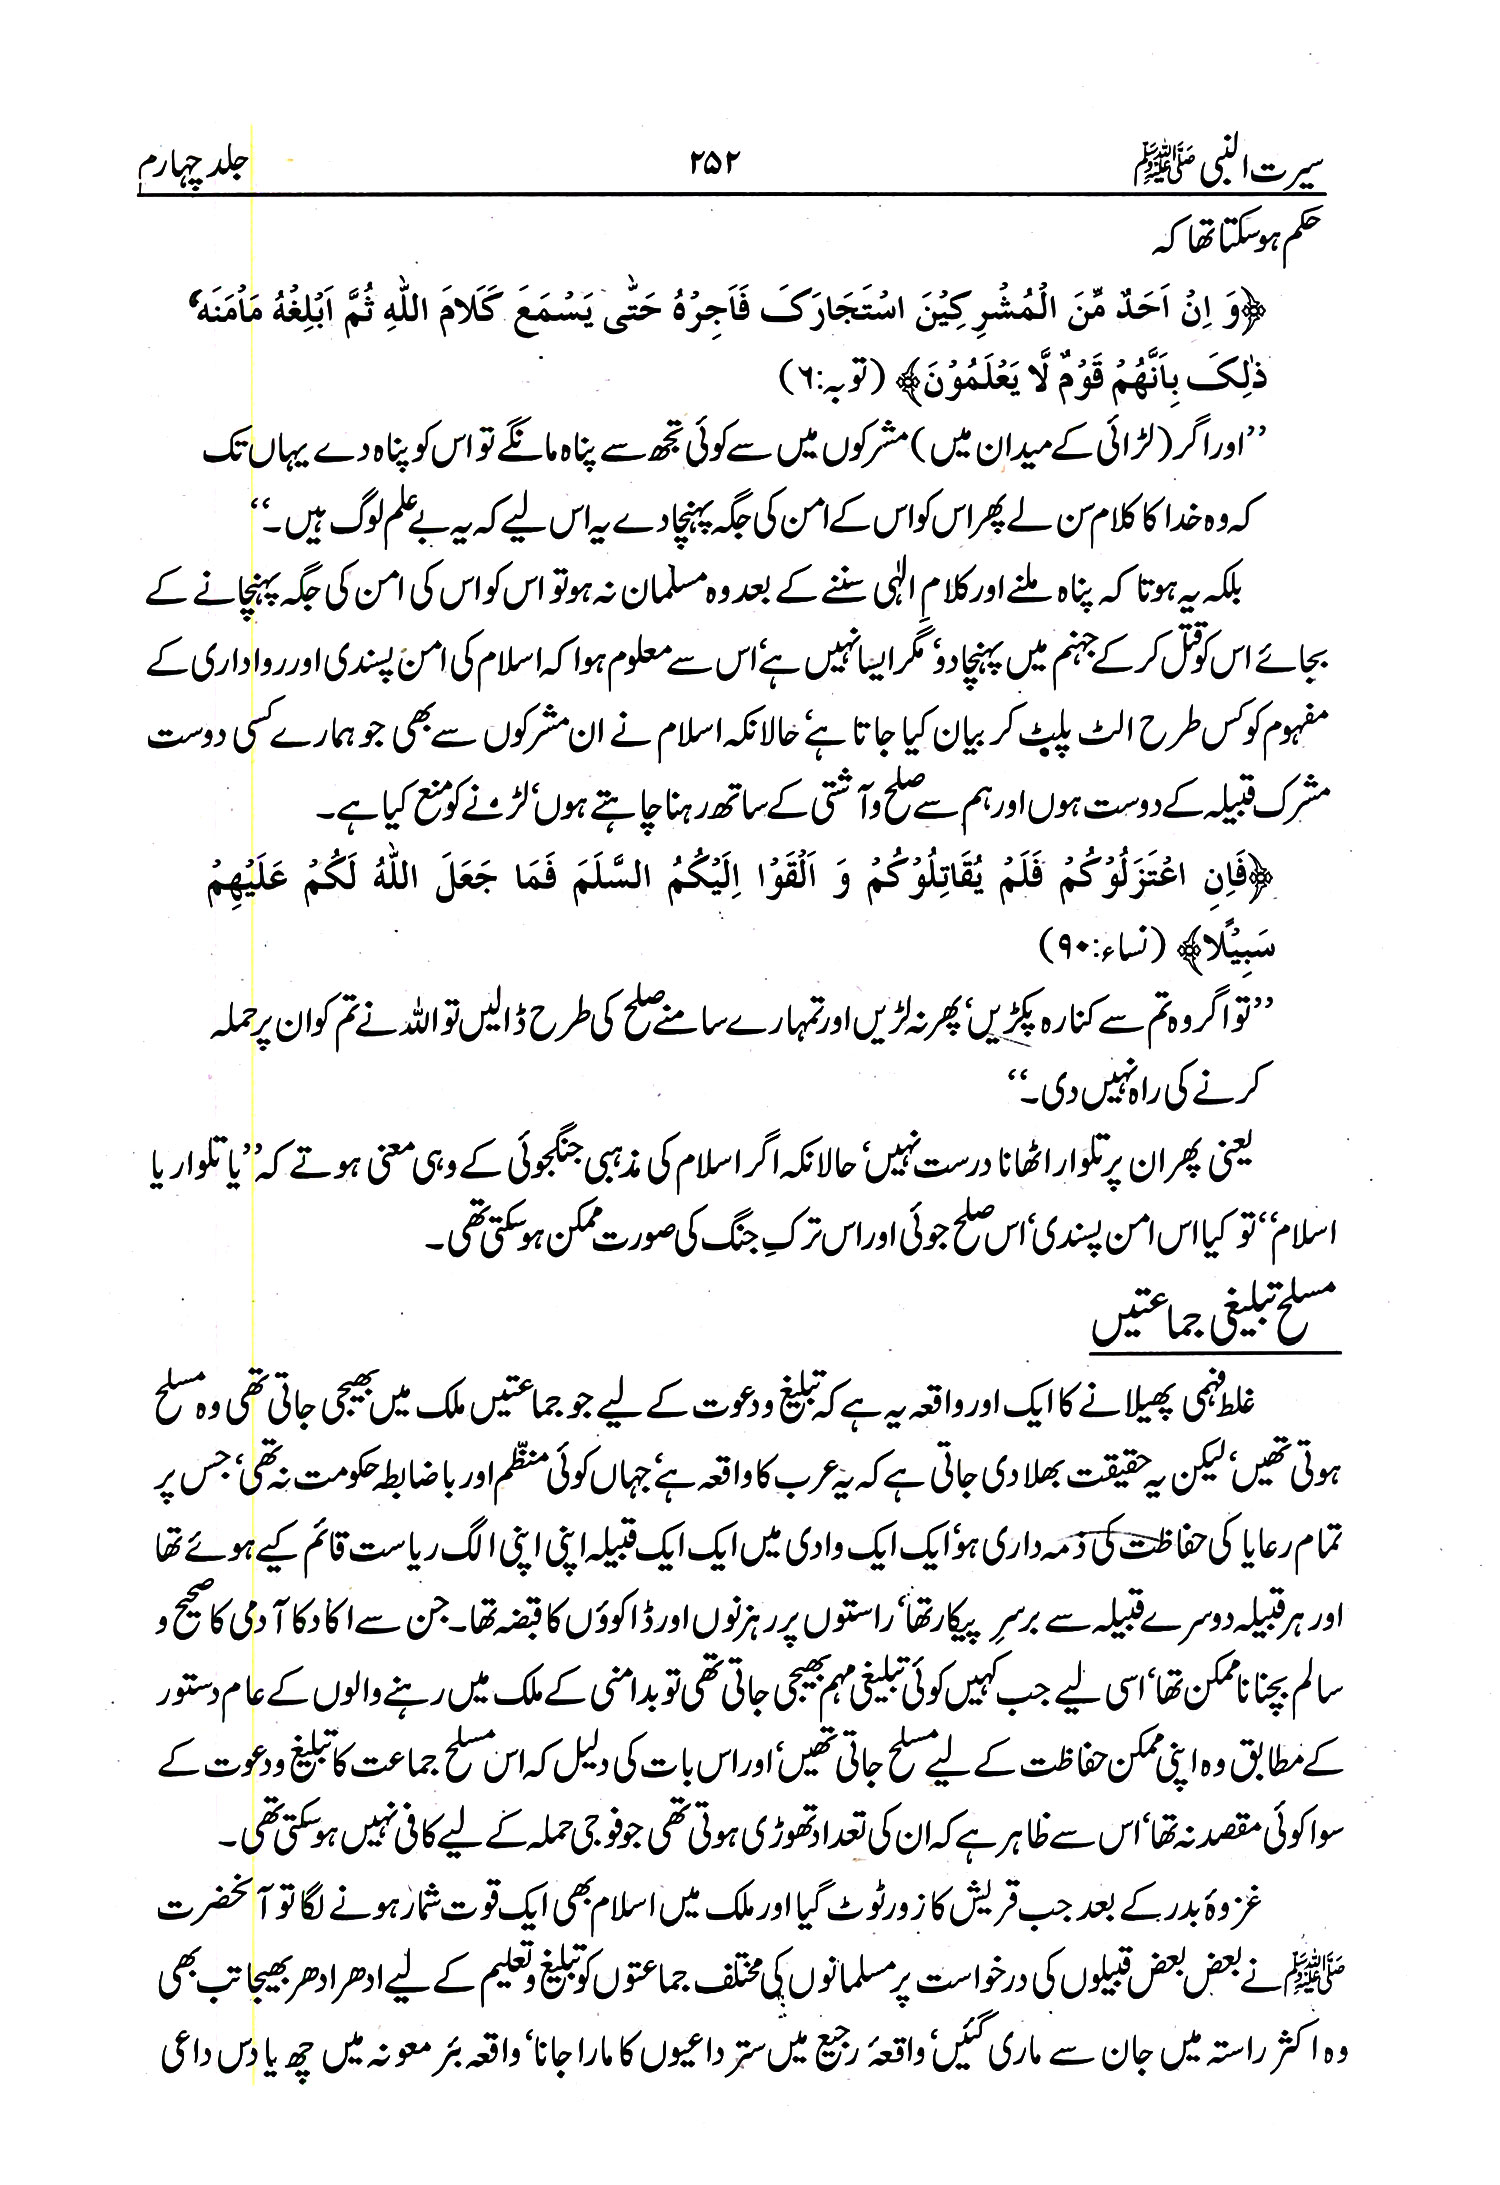 سیرت النبی ﷺ ۲۵۲ جلد چہارم
حکم ہو سکتا تھا کہ
﴿وَ اِنْ اَحَدٌ مِّنَ الْمُشْرِكِيْنَ اسْتَجَارَكَ فَاَجِرْهُ حَتّٰى يَسْمَعَ كَلَامَ اللّٰهِ ثُمَّ اَبْلِغْهُ مَاْمَنَه‘
ذٰلِكَ بِاَنَّهُمْ قَوْمٌ لَّا يَعْلَمُوْنَ﴾ (توبہ:۶)
’’اور اگر (لڑائی کے میدان میں) مشرکوں میں سے کوئی تجھ سے پناہ مانگے تو اس کو پناہ دے یہاں تک
کہ وہ خدا کا کلام سن لے پھر اس کو اس کے امن کی جگہ پہنچا دے یہ اس لیے کہ یہ بے علم لوگ ہیں۔‘‘
بلکہ یہ ہوتا کہ پناہ ملنے اور کلامِ الٰہی سننے کے بعد وہ مسلمان نہ ہو تو اس کو اس کی امن کی جگہ پہنچانے کے
بجائے اس کو قتل کر کے جہنم میں پہنچا دو‘ مگر ایسا نہیں ہے‘ اس سے معلوم ہوا کہ اسلام کی امن پسندی اور رواداری کے
مفہوم کو کس طرح الٹ پلٹ کر بیان کیا جاتا ہے‘ حالانکہ اسلام نے ان مشرکوں سے بھی جو ہمارے کسی دوست
مشرک قبیلہ کے دوست ہوں اور ہم سے صلح و آشتی کے ساتھ رہنا چاہتے ہوں‘ لڑنے کو منع کیا ہے۔
﴿فَاِنِ اعْتَزَلُوْكُمْ فَلَمْ يُقَاتِلُوْكُمْ وَ اَلْقَوْا اِلَيْكُمُ السَّلَمَ فَمَا جَعَلَ اللّٰهُ لَكُمْ عَلَيْهِمْ
سَبِيْلًا﴾ (نساء:۹۰)
’’تو اگر وہ تم سے کنارہ پکڑیں‘ پھر نہ لڑیں اور تمہارے سامنے صلح کی طرح ڈالیں تو اللہ نے تم کو ان پر حملہ
کرنے کی راہ نہیں دی۔‘‘
یعنی پھر ان پر تلوار اٹھانا درست نہیں‘ حالانکہ اگر اسلام کی مذہبی جنگجوئی کے وہی معنی ہوتے کہ ’’یا تلوار یا
اسلام‘‘ تو کیا اس امن پسندی‘ اس صلح جوئی اور اس ترکِ جنگ کی صورت ممکن ہو سکتی تھی۔
مسلح تبلیغی جماعتیں
غلط فہمی پھیلانے کا ایک اور واقعہ یہ ہے کہ تبلیغ و دعوت کے لیے جو جماعتیں ملک میں بھیجی جاتی تھی وہ مسلح
ہوتی تھیں‘ لیکن یہ حقیقت بھلا دی جاتی ہے کہ یہ عرب کا واقعہ ہے‘ جہاں کوئی منظّم اور باضابطہ حکومت نہ تھی‘ جس پر
تمام رعایا کی حفاظت کی ذمہ داری ہو‘ ایک ایک وادی میں ایک ایک قبیلہ اپنی اپنی الگ ریاست قائم کیے ہوئے تھا
اور ہر قبیلہ دوسرے قبیلہ سے برسرِ پیکار تھا‘ راستوں پر رہزنوں اور ڈاکوؤں کا قبضہ تھا۔ جن سے اکا دکا آدمی کا صحیح و
سالم بچنا ناممکن تھا‘ اسی لیے جب کہیں کوئی تبلیغی مہم بھیجی جاتی تھی تو بدامنی کے ملک میں رہنے والوں کے عام دستور
کے مطابق وہ اپنی ممکن حفاظت کے لیے مسلح جاتی تھیں‘ اور اس بات کی دلیل کہ اس مسلح جماعت کا تبلیغ و دعوت کے
سوا کوئی مقصد نہ تھا‘ اس سے ظاہر ہے کہ ان کی تعداد تھوڑی ہوتی تھی جو فوجی حملہ کے لیے کافی نہیں ہو سکتی تھی۔
غزوۂ بدر کے بعد جب قریش کا زور ٹوٹ گیا اور ملک میں اسلام بھی ایک قوت شمار ہونے لگا تو آنحضرت
ﷺ نے بعض بعض قبیلوں کی درخواست پر مسلمانوں کی مختلف جماعتوں کو تبلیغ و تعلیم کے لیے ادھر ادھر بھیجا تب بھی
وہ اکثر راستہ میں جان سے ماری گئیں‘ واقعۂ رجیع میں ستر داعیوں کا مارا جانا‘ واقعہ بئر معونہ میں چھ یا دس داعی